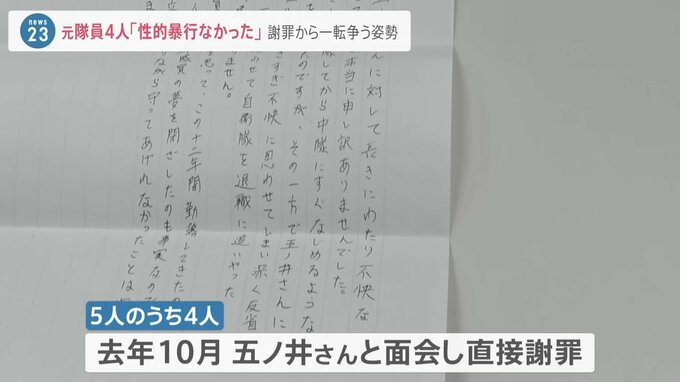 news
23
元隊員4人「性的暴行なかった」 謝罪から一転争う姿勢
んに対して長きにわたり不快な
本当に申し訳ありませんでした。
してから中隊にすぐなじめるような
のですが、その一方で五ノ井さんに
すぎ不快に思わせてしまい深く反省
ません。
のせて自衛隊を退職に追いやった
思って、この十二年間勤務してきたの
隊員の夢を閉ざしたのも事実なので
ながら守ってあげれなかったことは
5人のうち4人
去年10月 五ノ井さんと面会し直接謝罪